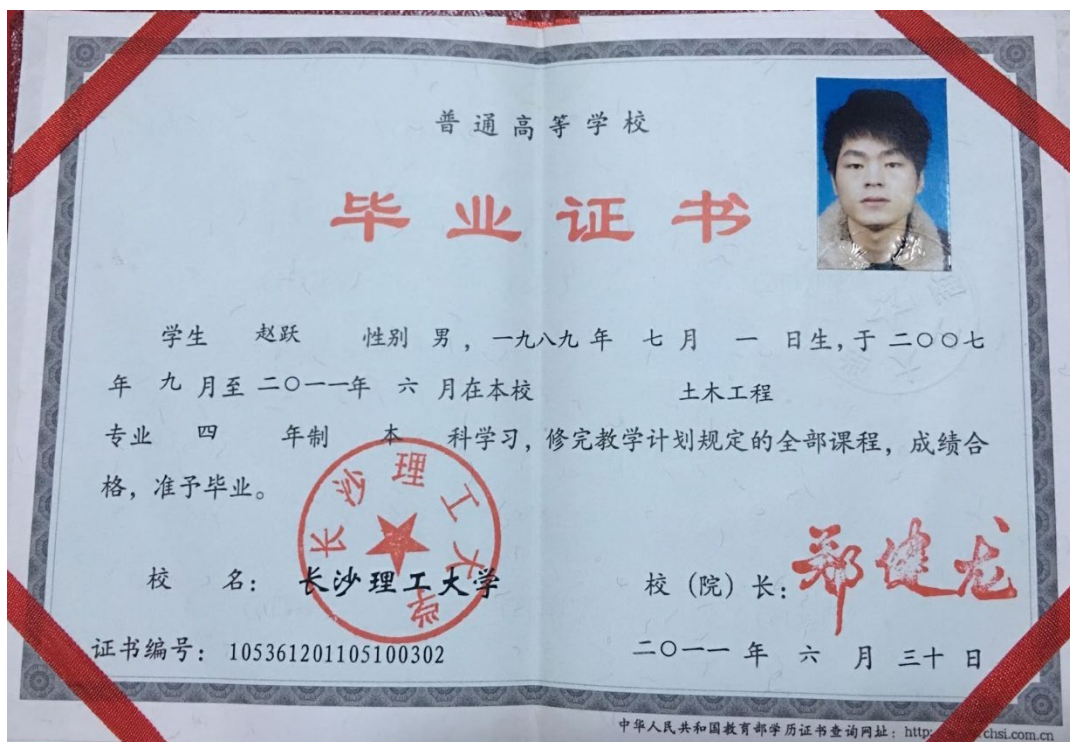 普通高等学校
毕业证书
学生 赵跃 性别 男，一九八九年 七月 一 日生，于二〇〇七
年 九 月至二〇一一年 六 月在本校 土木工程
专业 四 年制 本 科学习，修完教学计划规定的全部课程，成绩合
格，准予毕业。
长沙理工大学
校 名：长沙理工大学
校（院）长：郑健龙
证书编号：105361201105100302
二〇一一年 六 月 三十 日
中华人民共和国教育部学历证书查询网址：http: chsi.com.cn